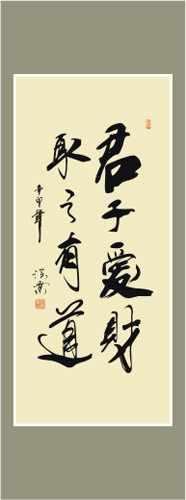 君子愛財
取之有道
辛卯年